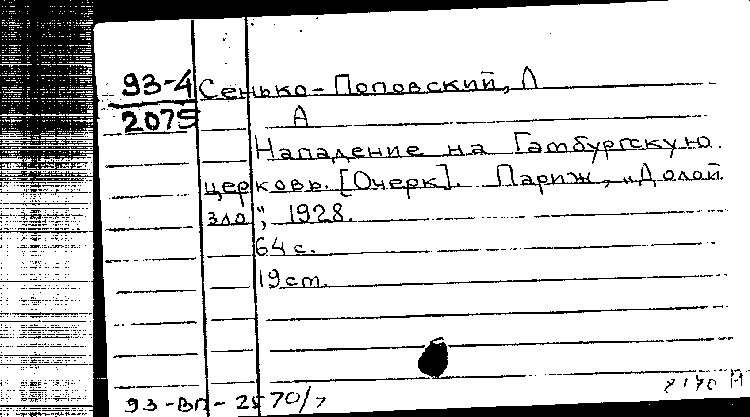 93-4 Сенько-Поповский, Л
2075 А
Нападение на Гамбургскую
церковь. [Очерк]. Париж, „Долой
зло“, 1928.
64 с.
19 cm.
93-ВП-2570/7